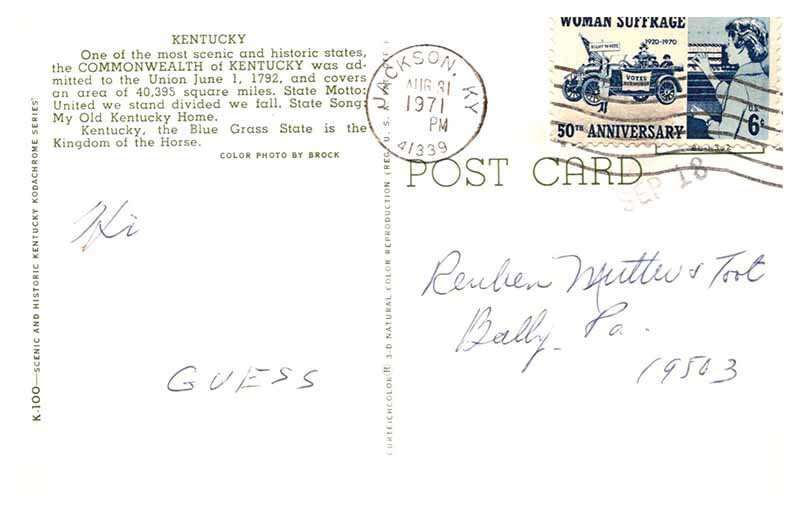 KENTUCKY
One of the most scenic and historic states,
the COMMONWEALTH of KENTUCKY was ad-
mitted to the Union June 1, 1792, and covers
an area of 40,395 square miles. State Motto:
United we stand divided we fall. State Song:
My Old Kentucky Home.
Kentucky, the Blue Grass State is the
Kingdom of the Horse.
COLOR PHOTO BY BROCK
K-100—SCENIC AND HISTORIC KENTUCKY KODACHROME SERIES
Hi
GUESS
CURTEICHCOLOR® 3-D NATURAL COLOR REPRODUCTION (REG. U. S. A.
JACKSON, KY
AUG 31
1971
PM
41339
WOMAN SUFFRAGE
1920-1970
VOTES
50TH ANNIVERSARY
U.S.
6c
POST CARD
SEP 18
Reuben Mutter & Toot
Bally Pa.
19503